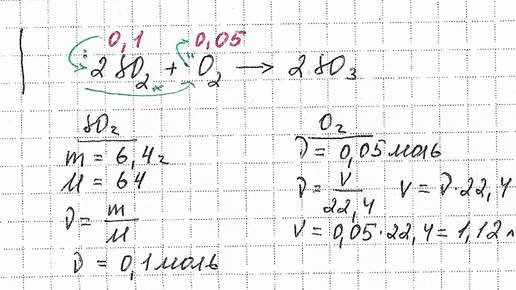 0,1 0,05
2 SO₂ + O₂ → 2 SO₃
SO₂
m = 6,4 г
M = 64
ν = m/M
ν = 0,1 моль
O₂
ν = 0,05 моль
ν = V/22,4 V = ν·22,4
V = 0,05·22,4 = 1,12 л